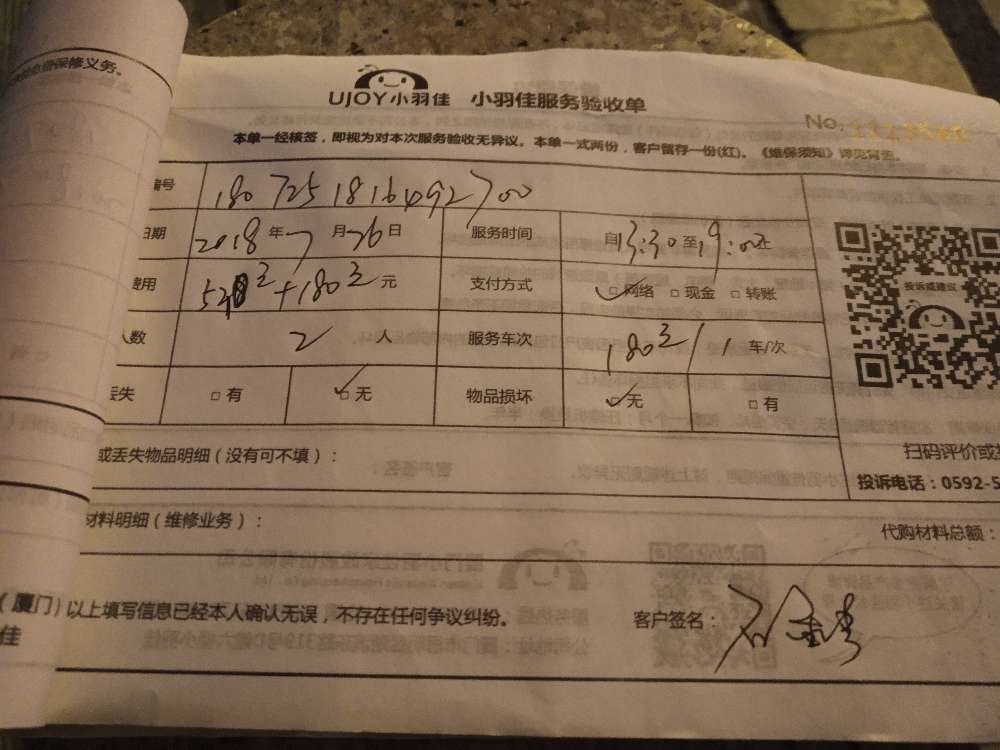 免费保修义务。
UJOY小羽佳 小羽佳服务验收单
No.
本单一经核签，即视为对本次服务验收无异议。本单一式两份，客户留存一份(红)。《维保须知》详见背面。
编号 180725181649270 0
日期 2018年7月26日 服务时间 自13:30至19:00止
费用 元 支付方式 □网络 □现金 □转账
人数 2 人 服务车次 180元/1 车/次
丢失 □有 □无 物品损坏 □无 □有
投诉或建议
或丢失物品明细（没有可不填）：
扫码评价或
投诉电话：0592-5
材料明细（维修业务）：
代购材料总额：
（厦门）以上填写信息已经本人确认无误，不存在任何争议纠纷。
佳
客户签名：